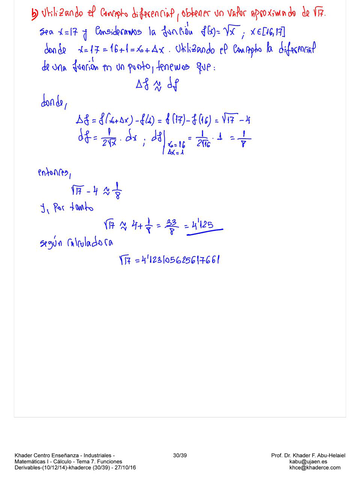 b) Utilizando el concepto diferencial, obtener un valor aproximado de √17.
Sea x=17 y consideramos la función f(x)=√x ; x∈[16,17]
donde x=17=16+1=x₀+Δx. Utilizando el concepto la diferencial
de una función en un punto, tenemos que:
Δf ≈ df
donde,
Δf = f(x₀+Δx)-f(x₀) = f(17)-f(16) = √17 - 4
df = 1/2√x · dx ; df| x₀=16 Δx=1 = 1/2√16 · 1 = 1/8
entonces,
√17 - 4 ≈ 1/8
y, por tanto
√17 ≈ 4+1/8 = 33/8 = 4'125
según calculadora
√17 = 4'123105625617661
Khader Centro Enseñanza - Industriales -
Matemáticas I - Cálculo - Tema 7: Funciones
Derivables-(10/12/14)-khaderce (30/39) - 27/10/16
30/39
Prof. Dr. Khader F. Abu-Helaiel
kabu@ujaen.es
khce@khaderce.com